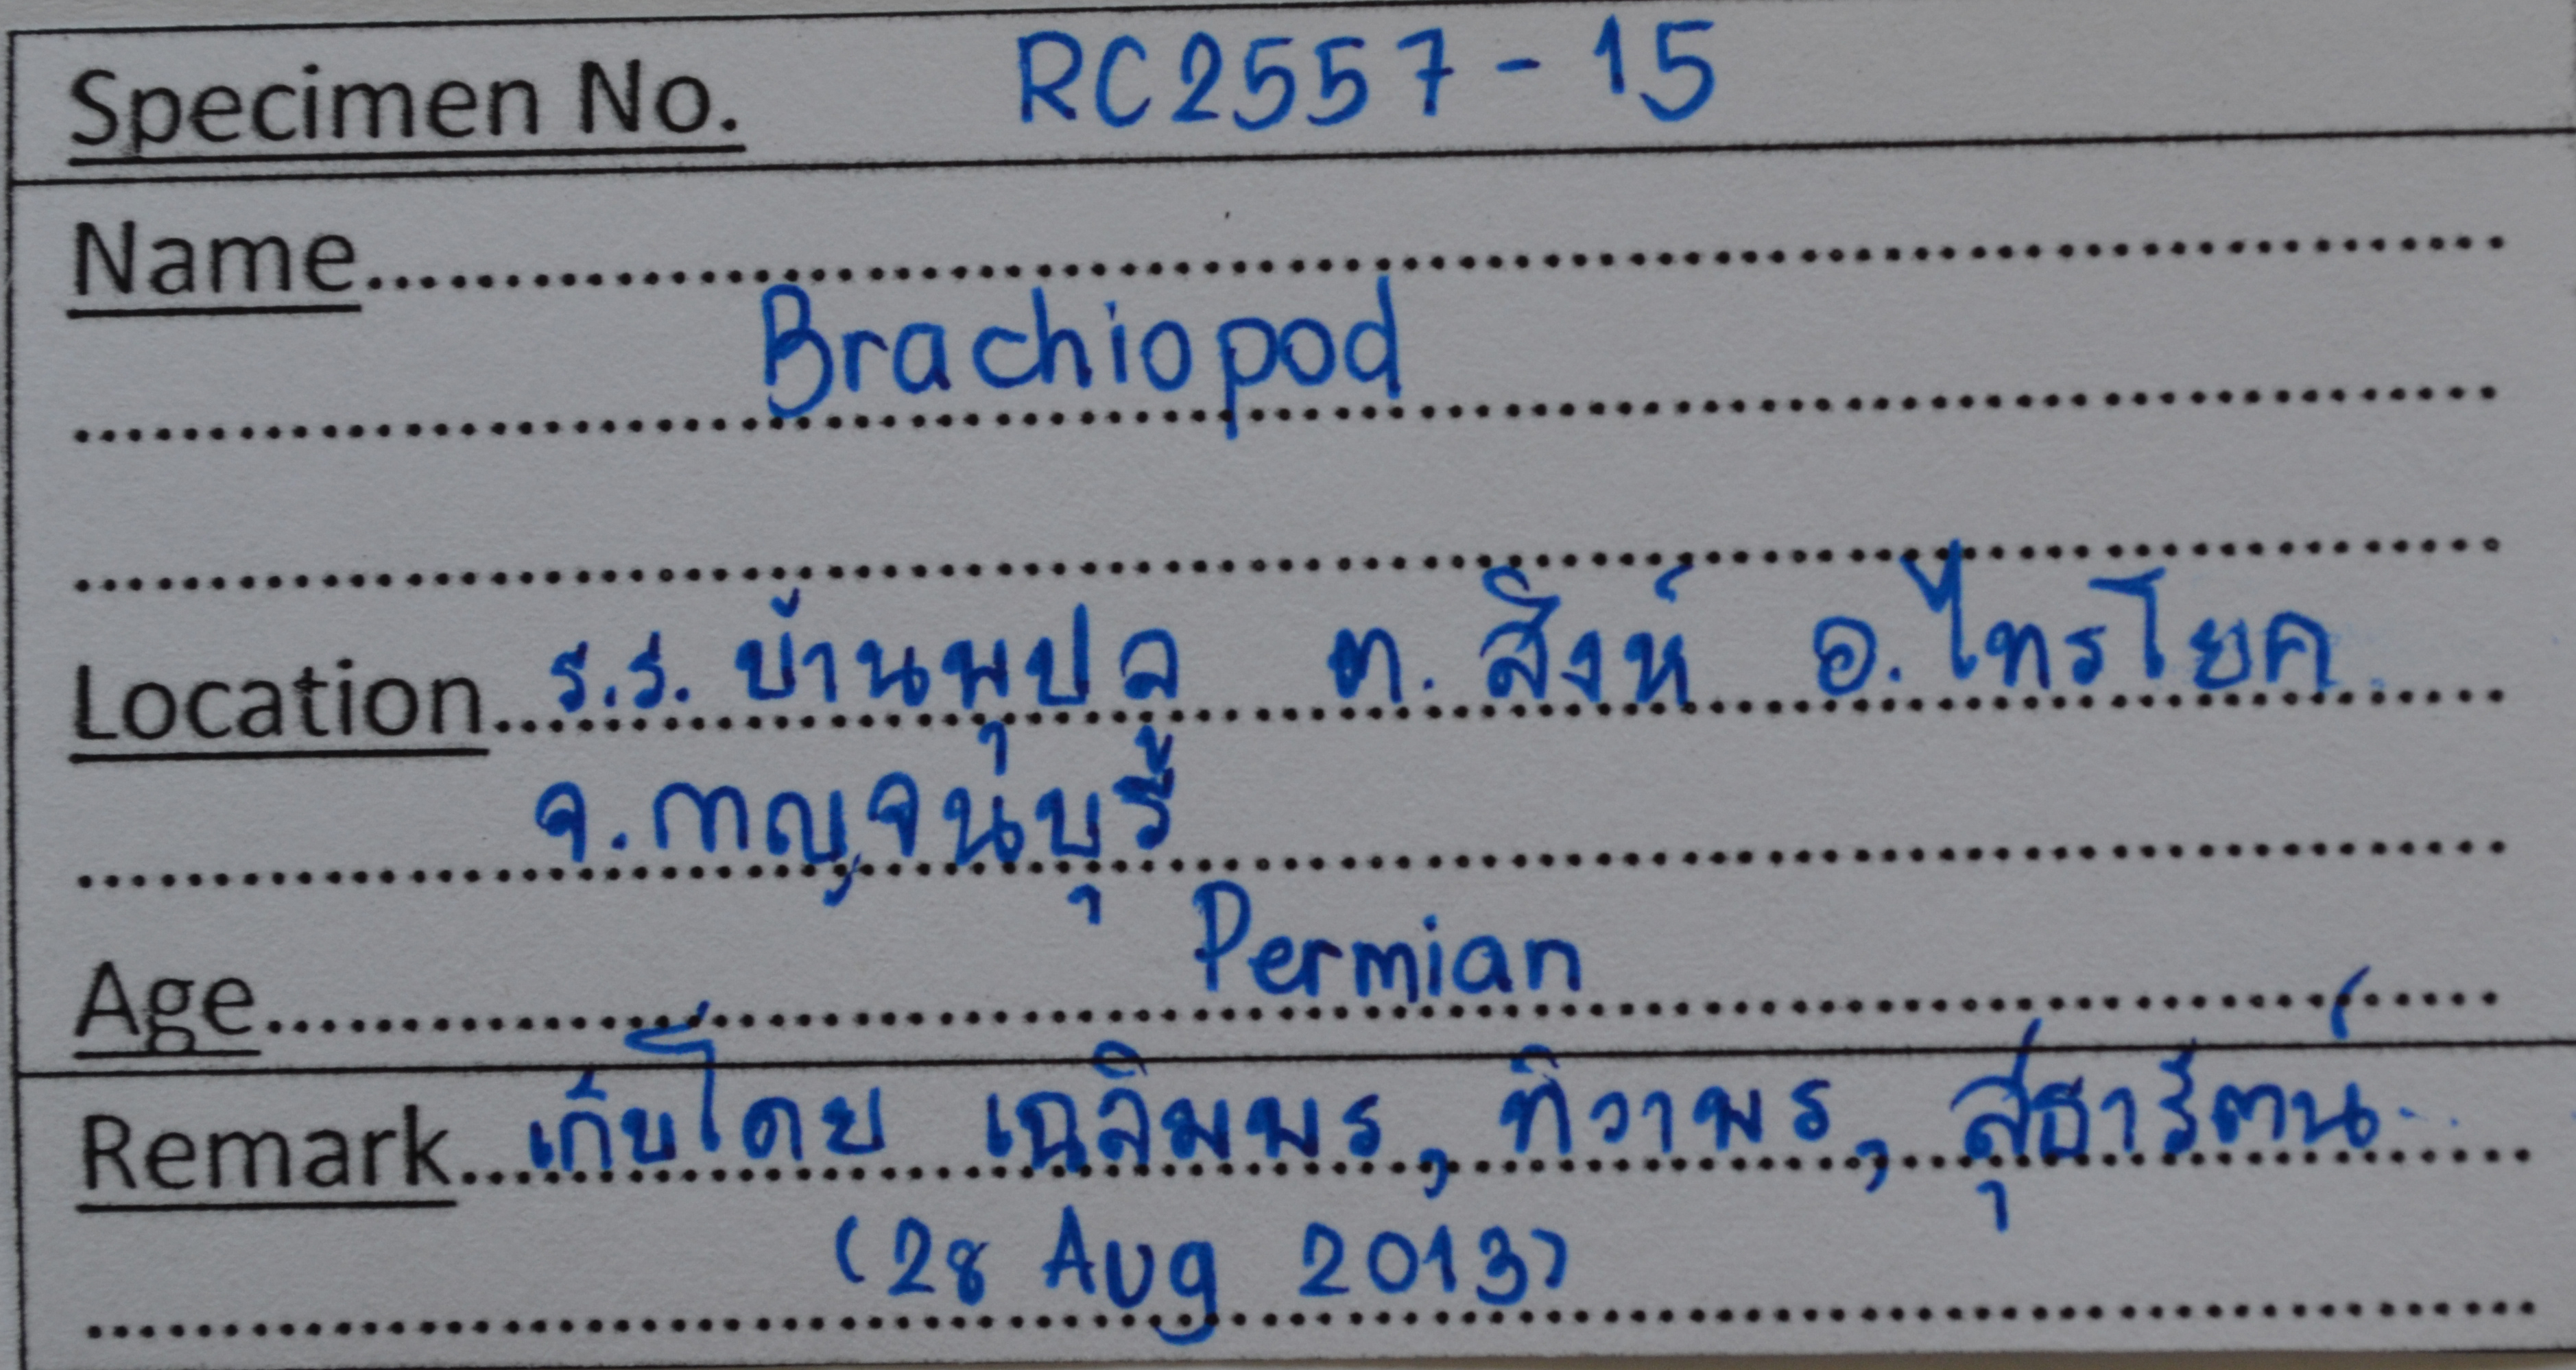 Specimen No. RC2557-15
Name
Brachiopod
Location ร.ร. บ้านพุปลุ ต. สิงห์ อ. ไทรโยค
จ. กาญจนบุรี
Age Permian
Remark เก็บโดย เฉลิมพร, ทิวาพร, สุธารัตน์
(28 Aug 2013)